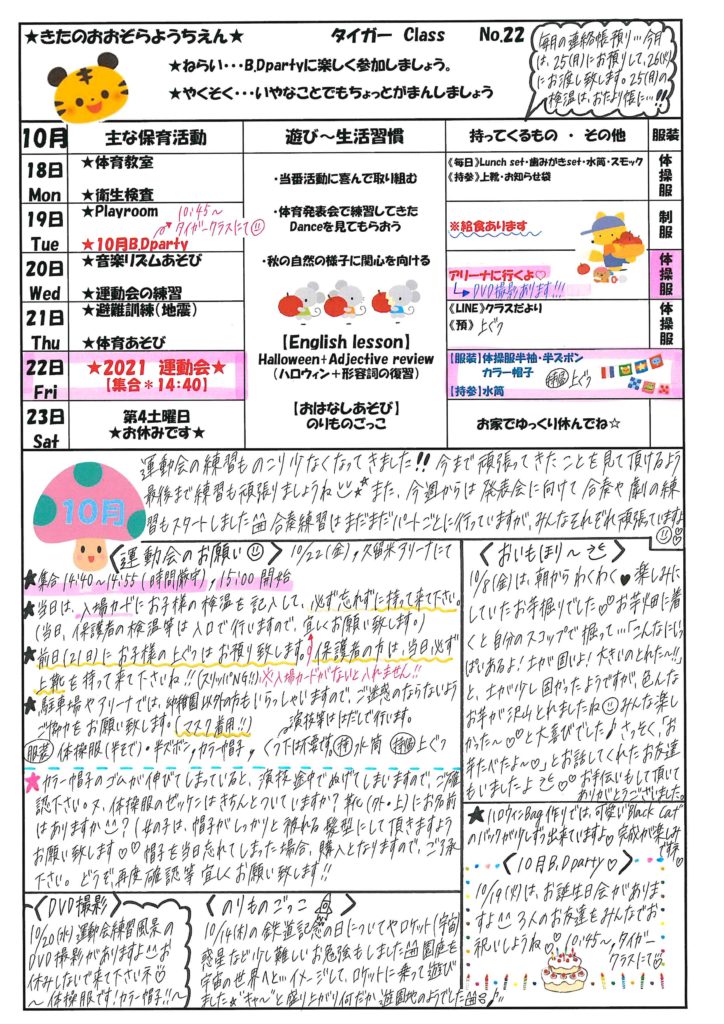 ★きたのおおぞらようちえん★ タイガー Class No.22
★ねらい・・・B.Dpartyに楽しく参加しましょう。
★やくそく・・・いやなことでもちょっとがまんしましょう
毎月の連絡帳預り…今月
は、25(月)にお預りして、26(火)
にお渡し致します。25(月)の
検温は、おたより帳に…!!
10月 主な保育活動 遊び～生活習慣 持ってくるもの ・ その他 服装
18日 Mon
★体育教室
★衛生検査
《毎日》Lunch set・歯みがきset・水筒・スモック
《持参》上靴・お知らせ袋
体操服
19日 Tue
★Playroom
10:45～
タイガークラスにて
★10月B.Dparty
※給食あります
制服
20日 Wed
★音楽リズムあそび
★運動会の練習
アリーナに行くよ♡
DVD撮影あります!!!
体操服
21日 Thu
★避難訓練(地震)
★体育あそび
《LINE》クラスだより
《預》上ぐつ
体操服
22日 Fri
★2021 運動会★
【集合＊14:40】
【服装】体操服半袖・半ズボン
カラー帽子
【持参】水筒
上ぐつ
23日 Sat
第4土曜日
★お休みです★
お家でゆっくり休んでね☆
・当番活動に喜んで取り組む
・体育発表会で練習してきた
Danceを見てもらおう
・秋の自然の様子に関心を向ける
【English lesson】
Halloween+Adjective review
(ハロウィン+形容詞の復習)
【おはなしあそび】
のりものごっこ
10月
運動会の練習ものこり少なくなってきました!! 今まで頑張ってきたことを見て頂けるよう
最後まで練習も頑張りましょうね また、今週からは発表会に向けて合奏や劇の練
習もスタートしました 合奏練習はまだまだパートごとに行っていますが、みんなそれぞれ頑張ていますよ
〈運動会のお願い〉 10/22(金)、久留米アリーナにて
★集合 14:40～14:55(時間厳守)、15:00 開始
★当日は、入場カードにお子様の検温を記入して、必ず忘れずに持って来て下さい。
(当日、保護者の検温等は入口で行いますので、宜しくお願い致します。)
★前日(21日)にお子様の上ぐつはお預り致します。保護者の方は、当日必ず
上靴を持って来て下さいね!!(スリッパNG!!) ※入場カードがないと入れません!!
★駐車場やアリーナでは、幼稚園以外の方もいらっしゃいますので、ご迷惑のならないよう
ご協力をお願い致します。(マスク着用!!)
演技等ははだしで行います。
服装 体操服(半そで)・半ズボン、カラー帽子、(くつ下は不要です。) 持 水筒 上ぐつ
★カラー帽子のゴムが伸びてしまっていると、演技途中でぬげてしまいますので、ご確
認下さい。又、体操服のゼッケンはきちんとついていますか？靴(外・上)にお名前
はありますか？(女の子は、帽子がしっかりと被れる髪型にして頂きますよう
お願い致します♡♡ 帽子を当日忘れてしまった場合、購入となりますので、ご了承
下さい。どうぞ、再度確認等 宜しくお願い致します!!
〈おいもほり～〉
10/8(金)は、朝からわくわく♥ 楽しみに
していたお芋掘りでした♡♡お芋畑に着
くと自分のスコップで掘って…「こんなにいっ
ぱいあるよ！土が固いよ！大きいのとれた～!!」
と、土が少し固かったようですが、色んな
お芋が沢山とれましたね みんな楽し
かった～♡♡と大喜びでした♪さっそく、「お
芋たべたよ～♡」とお話してくれたお友達
もいましたよ♡♡ お手伝いもして頂いて
ありがとうございました。
★ハロウィンBag作りでは、可愛いBlack Cat
のバックが少しずつ出来ていますよ♡完成が楽しみ
ですね
〈10月B.Dparty♡〉
10/19(火)は、お誕生日会がありま
すよ 3人のお友達をみんなでお
祝いしようね♡ 10:45～、タイガー
クラスにて♡
〈DVD撮影〉
10/20(水)運動会練習風景の
DVD撮影がありますよ お
休みしないで来て下さいネ♡
～体操服です!カラー帽子!!～
〈のりものごっこ〉
10/14(木)の鉄道記念の日についてやロケット(宇宙)
惑星など少し難しいお勉強もしました 園庭を
宇宙の世界へと…イメージして、ロケットに乗って遊び
ました☆"キャー"と盛り上がり何だか遊園地のようでした♪